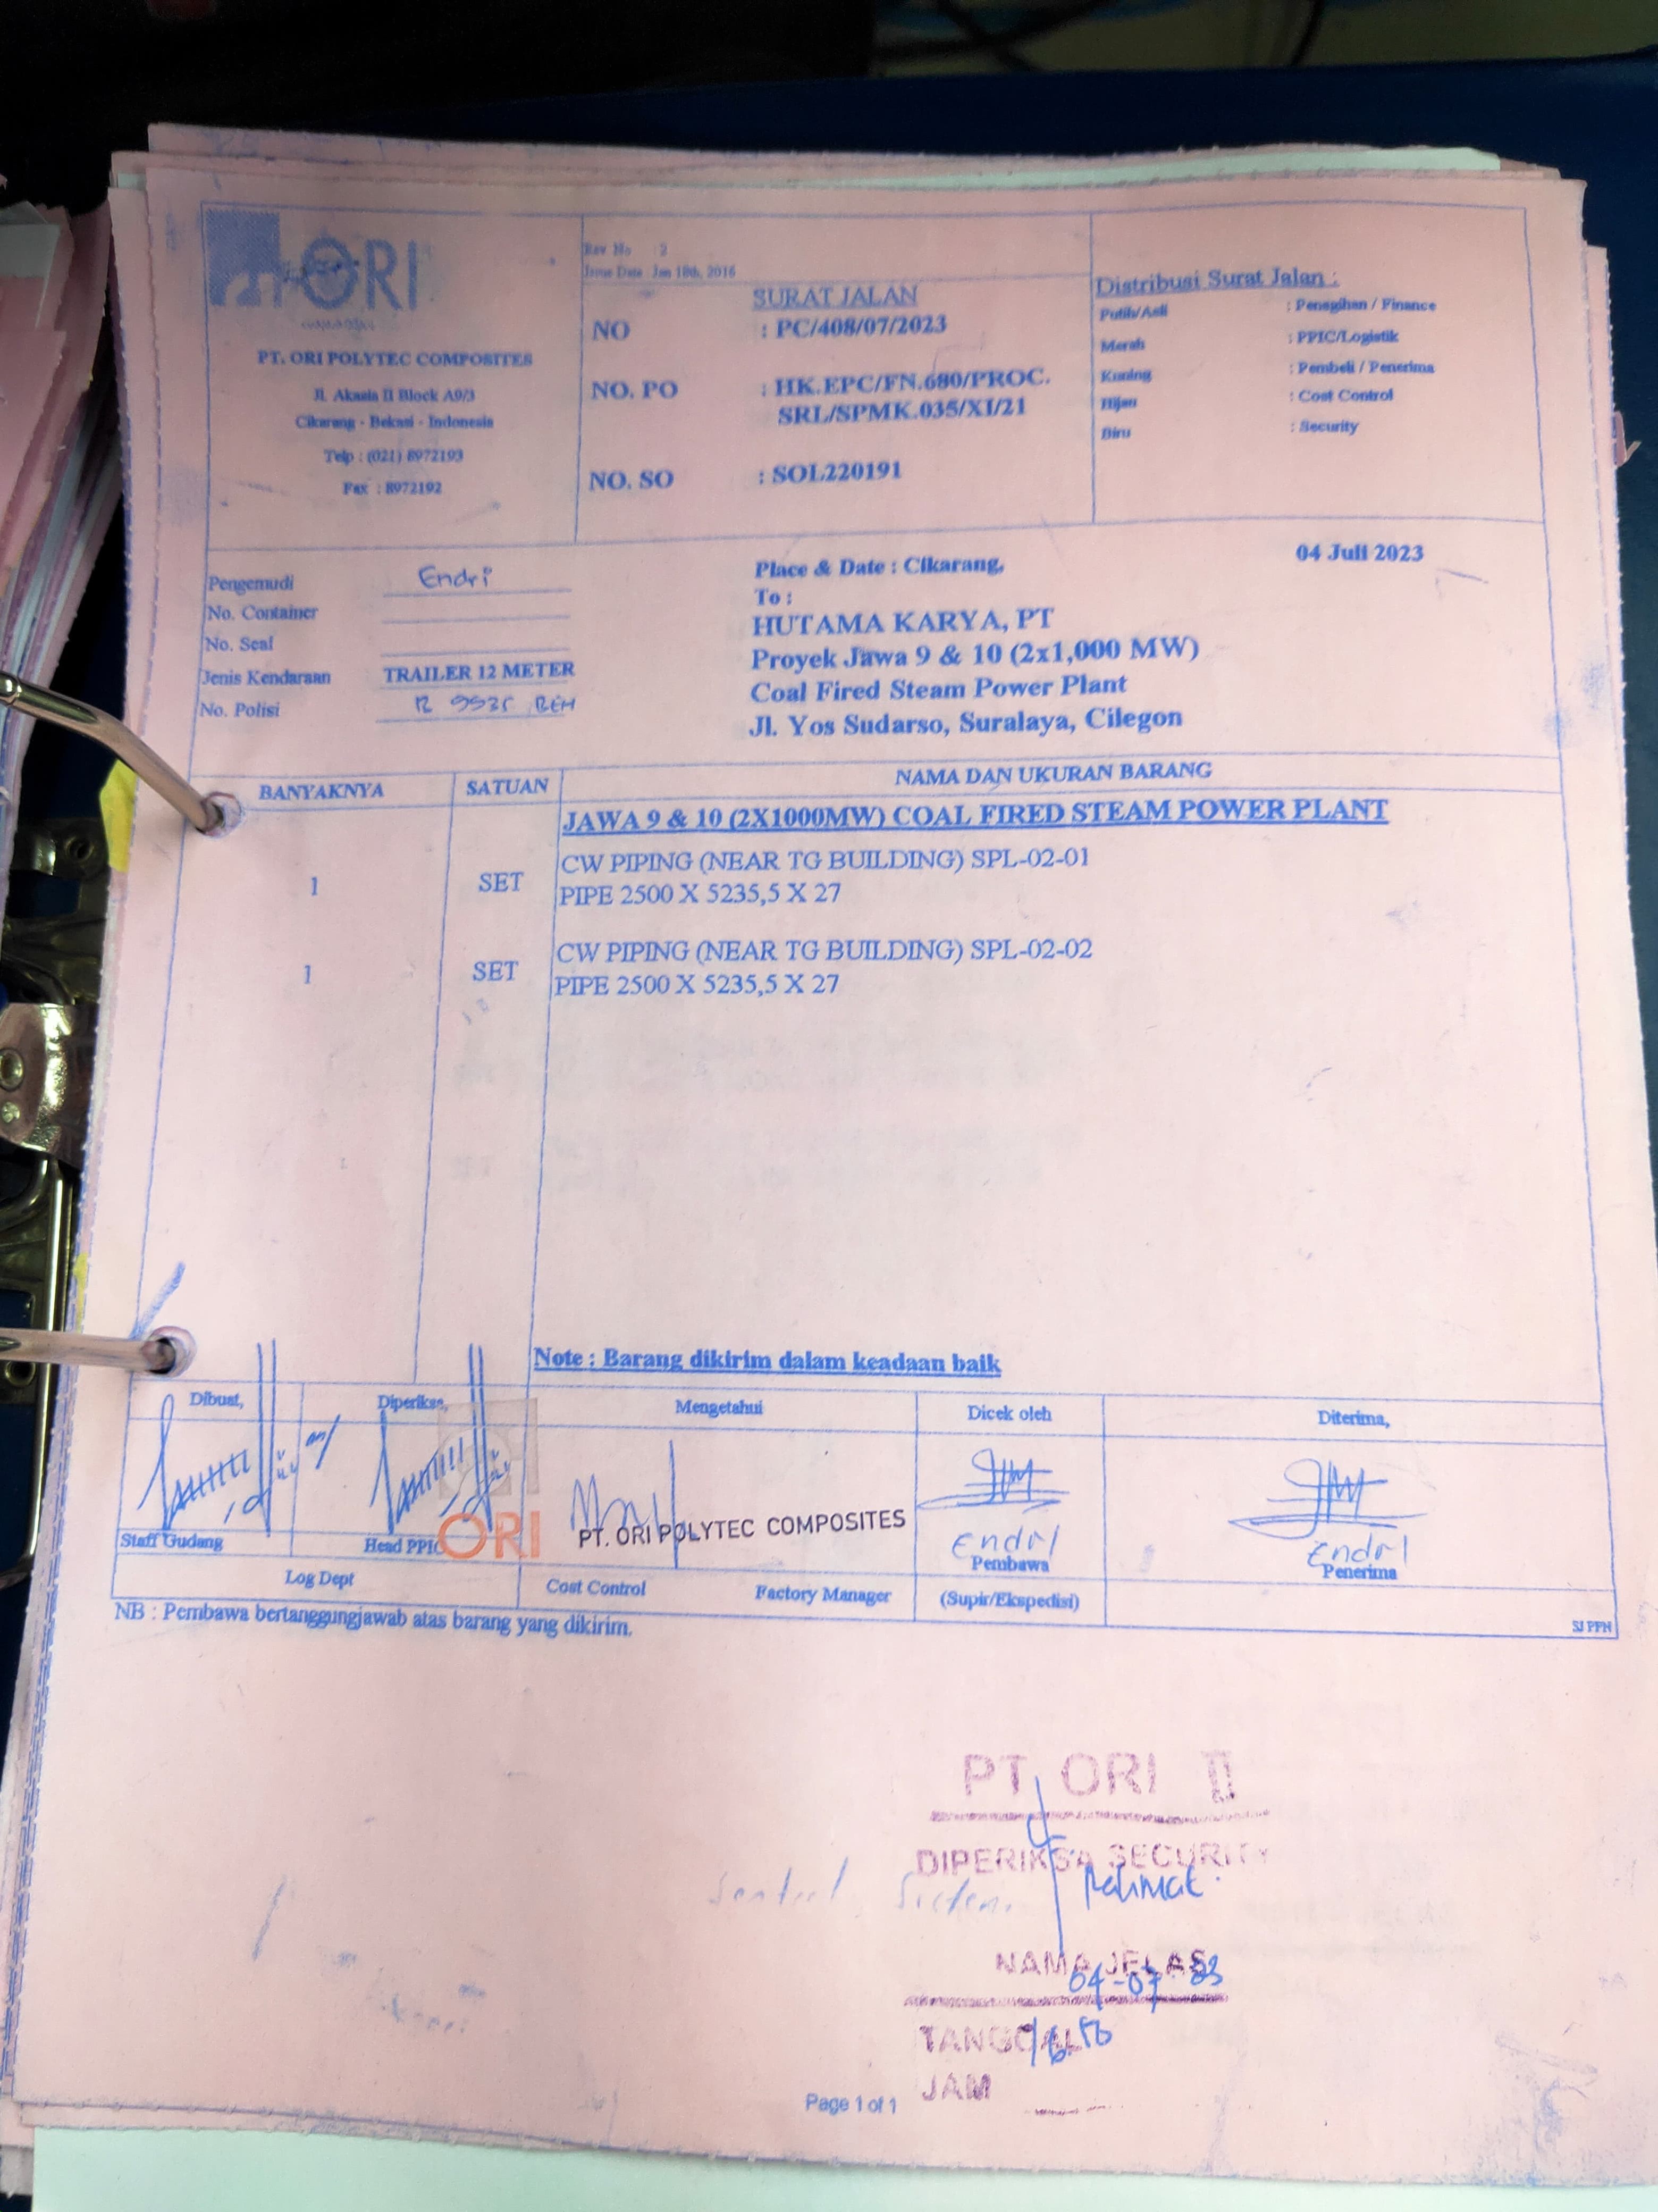 ORI
PT. ORI POLYTEC COMPOSITES
Jl. Akasia II Block A9/3
Cikarang - Bekasi - Indonesia
Telp : (021) 8972193
Fax : 8972192
Rev No 2
Issue Date Jan 18th, 2016
SURAT JALAN
NO : PC/408/07/2023
NO. PO : HK.EPC/FN.680/PROC.
SRL/SPMK.035/XI/21
NO. SO : SOL220191
Distribusi Surat Jalan :
Putih/Asli : Penagihan / Finance
Merah : PPIC/Logistik
Kuning : Pembeli / Penerima
Hijau : Cost Control
Biru : Security
Pengemudi Endri
No. Container
No. Seal
Jenis Kendaraan TRAILER 12 METER
No. Polisi
Place & Date : Cikarang, 04 Juli 2023
To :
HUTAMA KARYA, PT
Proyek Jawa 9 & 10 (2x1,000 MW)
Coal Fired Steam Power Plant
Jl. Yos Sudarso, Suralaya, Cilegon
BANYAKNYA SATUAN NAMA DAN UKURAN BARANG
JAWA 9 & 10 (2X1000MW) COAL FIRED STEAM POWER PLANT
1 SET CW PIPING (NEAR TG BUILDING) SPL-02-01
PIPE 2500 X 5235,5 X 27
1 SET CW PIPING (NEAR TG BUILDING) SPL-02-02
PIPE 2500 X 5235,5 X 27
Note : Barang dikirim dalam keadaan baik
Dibuat, Diperiksa, Mengetahui Dicek oleh Diterima,
ORI PT. ORI POLYTEC COMPOSITES
Endri Endri
Staff Gudang Head PPIC Pembawa Penerima
Log Dept Cost Control Factory Manager (Supir/Ekspedisi)
NB : Pembawa bertanggungjawab atas barang yang dikirim.
SJ PPN
PT. ORI II
DIPERIKSA SECURITY
Rahmat
NAMA JELAS
04-07-23
TANGGAL
JAM
Page 1 of 1